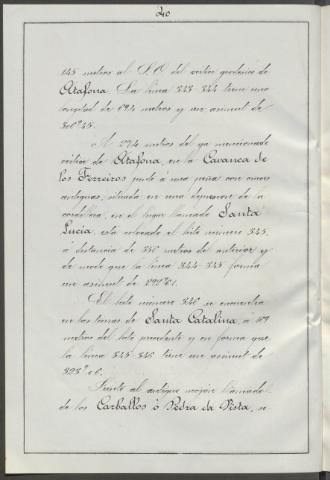 240
145 metros al S.O. del vértice geodésico de
Atafona. La línea 343-344 tiene una
longitud de 194 metros y un azimut de
 
A 274 metros del ya mencionado
vértice de Atafona, en la Cavanca de
los Ferreiros junto á una peña con cruces
antiguas, situada en una depresión de la
cordillera, en el lugar llamado Santa
Lucia, está colocado el hito número 345,
á distancia de 350 metros del anterior y
de modo que la línea 344-345 forma
un azimut de
El hito número 346 se encuentra
en las touzas de Santa Catalina, á
metros del hito precedente y en forma que
la línea 345-346 tiene un azimut de
 
Junto al antiguo mojón llamado
de los Carballos ó Pedra da Vista, se